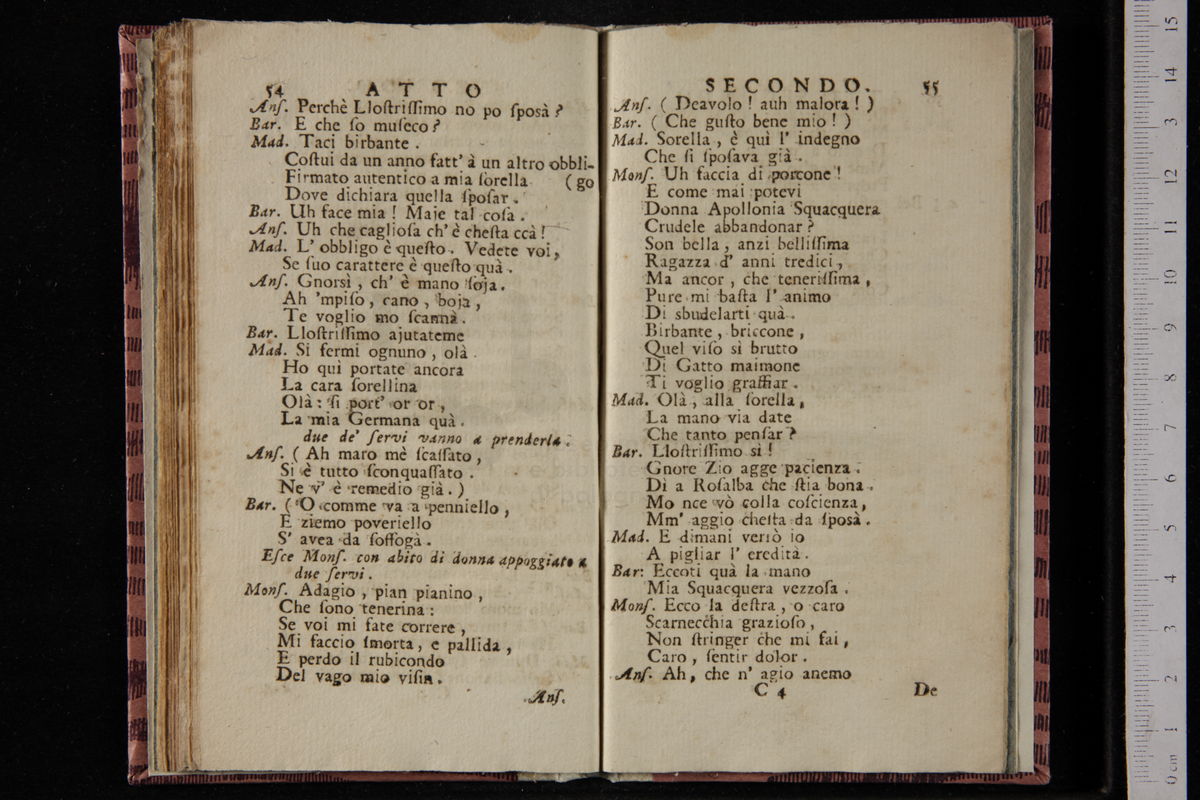 54 ATTO
Anſ. Perchè Lloſtriſſimo no po ſposà?
Bar. E che ſo muſeco?
Mad. Taci birbante.
Coſtui da un anno fatt' à un altro obbli-
Firmato autentico a mia ſorella (go
Dove dichiara quella ſpoſar.
Bar. Uh face mia! Maje tal coſa.
Anſ. Uh che caglioſa ch' è cheſta ccà!
Mad. L' obbligo è queſto. Vedete voi,
Se ſuo carattere è queſto quà.
Anſ. Gnorsì, ch' è mano ſoja.
Ah 'mpiſo, cano, boja,
Te voglio mo ſcannà.
Bar. Lloſtriſſimo ajutateme
Mad. Si fermi ognuno, olà.
Ho quì portate ancora
La cara ſorellina
Olà: ſi port' or or,
La mia Germana quà.
due de' ſervi vanno a prenderla.
Anſ. (Ah maro mè ſcaſſato,
Si è tutto ſconquaſſato.
Ne v' è remedio già.)
Bar. (O comme va a penniello,
E ziemo poveriello
S' avea da ſoffogà.
Eſce Monſ. con abito di donna appoggiato a
due ſervi.
Monſ. Adagio, pian pianino,
Che ſono tenerina:
Se voi mi fate correre,
Mi faccio ſmorta, e pallida,
E perdo il rubicondo
Del vago mio viſin.
Anſ.
SECONDO. 55
Anſ. (Deavolo! auh malora!)
Bar. (Che guſto bene mio!)
Mad. Sorella, è quì l' indegno
Che ſi ſpoſava già.
Monſ. Uh faccia di porcone!
E come mai potevi
Donna Apollonia Squacquera
Crudele abbandonar?
Son bella, anzi belliſſima
Ragazza d' anni tredici,
Ma ancor, che teneriſſima,
Pure mi baſta l' animo
Di sbudelarti quà.
Birbante, briccone,
Quel viſo sì brutto
Di Gatto maimone
Ti voglio graffiar.
Mad. Olà, alla ſorella,
La mano via date
Che tanto penſar?
Bar. Lloſtriſſimo sì!
Gnore Zio agge pacienza.
Dì a Roſalba che ſtia bona.
Mo nce vò colla coſcienza,
Mm' aggio cheſta da ſposà.
Mad. E dimani verrò io
A pigliar l' eredità.
Bar: Eccoti quà la mano
Mia Squacquera vezzoſa.
Monſ. Ecco la deſtra, o caro
Scarnecchia grazioſo,
Non ſtringer che mi fai,
Caro, ſentir dolor.
Anſ. Ah, che n' agio anemo
C 4 De